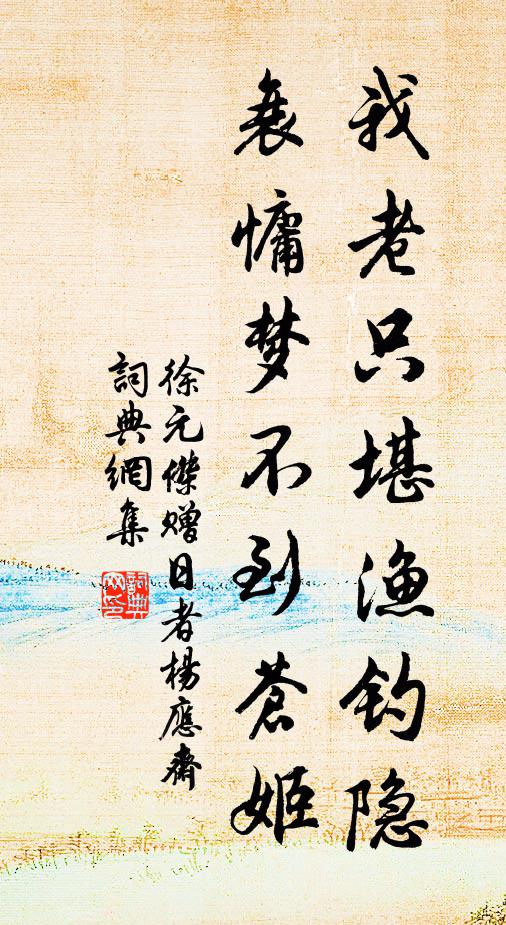 我老只堪渔钓隐
衰慵梦不到苍姬
徐元傑赠日者楊應齋
詞典網集